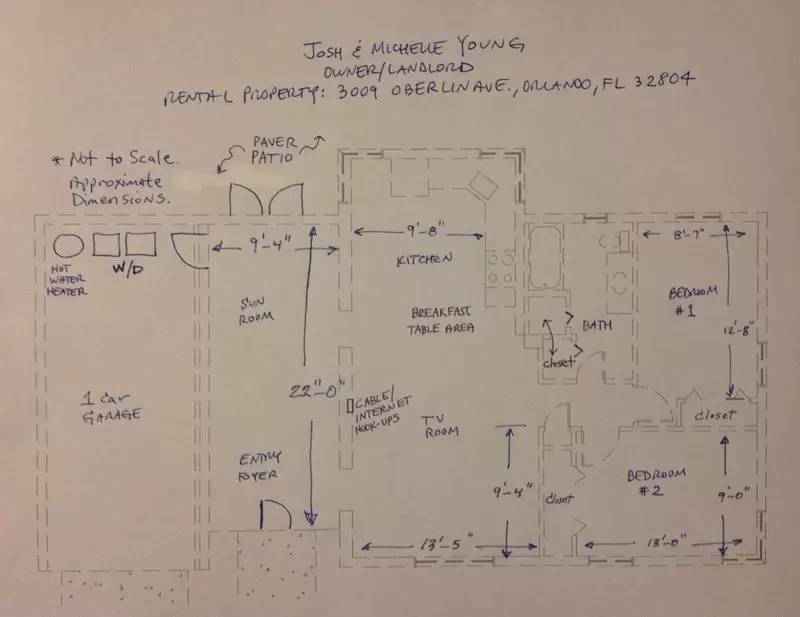 JOSH & MICHELLE YOUNG
OWNER/LANDLORD
RENTAL PROPERTY: 3009 OBERLIN AVE., ORLANDO, FL 32804
* Not to Scale.
Approximate
Dimensions.
PAVER
PATIO
HOT
WATER
HEATER
W/D
9'-4"
SUN
ROOM
9'-8"
KITCHEN
BREAKFAST
TABLE AREA
BATH
closet
8'-7"
BEDROOM
#1
12'-8"
closet
1 Car
GARAGE
22'-0"
CABLE/
INTERNET
HOOK-UPS
TV
ROOM
ENTRY
FOYER
9'-4"
13'-5"
closet
BEDROOM
#2
9'-0"
13'-0"